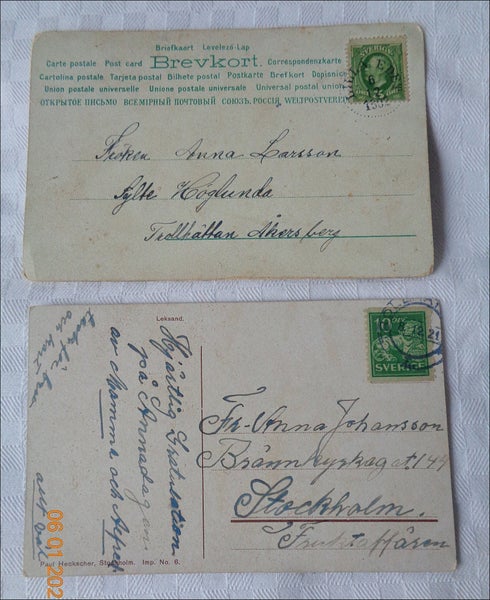 Briefkaart Levelező-Lap
Carte postale Post card Brevkort. Correspondenzkarte
Cartolina postale Tarjeta postal Bilhete postal Postkarte Brefkort Dopisnice
Union postale universelle Unione postale universale Universal postal union
ОТКРЫТОЕ ПИСЬМО ВСЕМІРНЫЙ ПОЧТОВЫЙ СОЮЗЪ. РОССІЯ. WELTPOSTVEREIN
SVERIGE
Fröken Anna Larsson
Fylte Höglunda
Trollhättan Åkersberg
Leksand.
Hjärtlig Gratulation
på Annadagen
av Mamma och Alfred
10 ÖRE
SVERIGE
21
Fr. Anna Johansson
Brännkyrkagat. 144
Stockholm.
Fruktaffären
Paul Heckscher, Stockholm. Imp. No. 6.
06 01 202